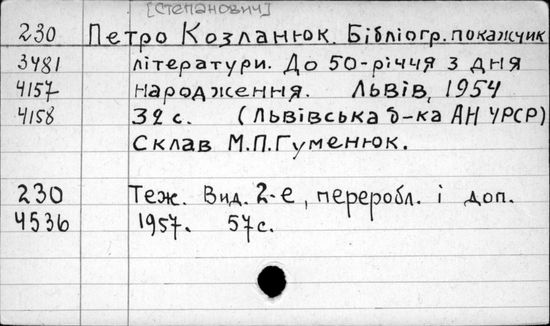 [Степанович]
230 Петро Козланюк. Бібліогр. покажчик
3481 літератури. До 50-річчя з дня
4157 народження. Львів, 1954
4158 32 с. (Львівська б-ка АН УРСР)
Склав М.П.Гуменюк.
230 Теж. Вид. 2-е, переробл. і доп.
4536 1957. 57с.